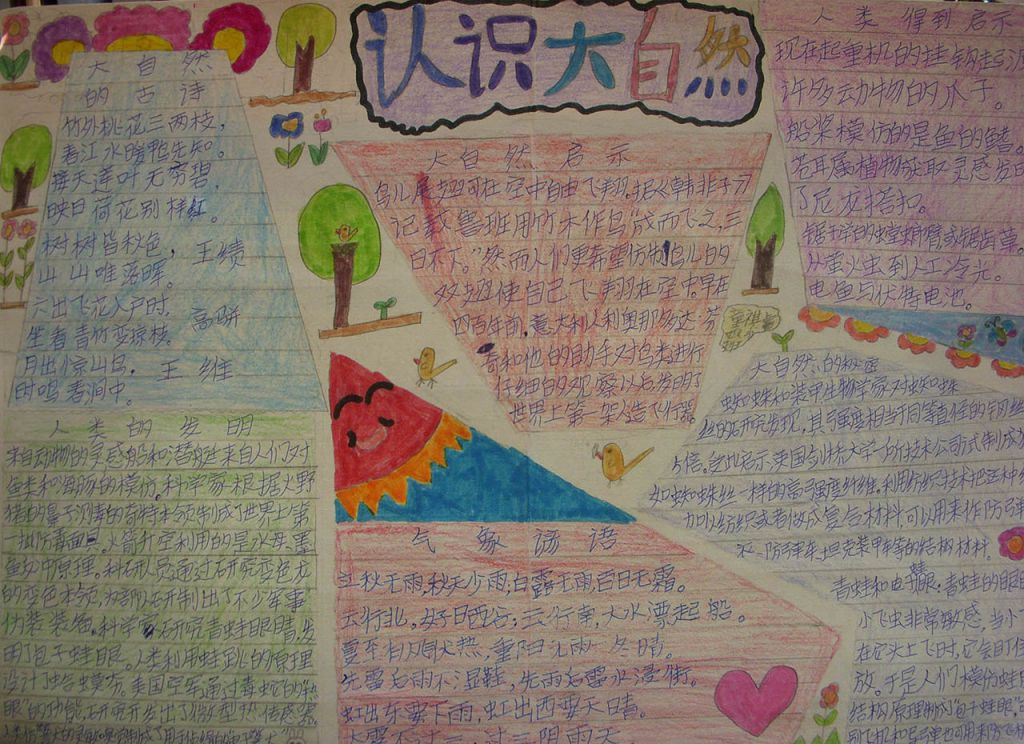 认识大自然
大自然
的古诗
竹外桃花三两枝，
春江水暖鸭先知。
接天莲叶无穷碧，
映日荷花别样红。
树树皆秋色，王绩
山山唯落晖。
六出飞花入户时，高骈
坐看青竹变琼枝。
月出惊山鸟，王维
时鸣春涧中。
大自然启示
鸟儿展翅可在空中自由飞翔。据《韩非子》
记载鲁班用竹木作鸟“成而飞之，三
日不下。”然而人们更希望仿制鸟儿的
双翅使自己飞翔在空中。早在
四百年前，意大利人利奥那多达·芬
奇和他的助手对鸟类进行
仔细的观察以后发明了
世界上第一架人造飞行器
人类得到启示
现在起重机的挂钩起
许多动物的爪子。
船桨模仿的是鱼的鳍。
苍耳属植物获取灵感发
了尼龙搭扣。
锯子学的螳螂臂或锯齿草。
从萤火虫到人工冷光。
电鱼与伏特电池。
大自然的秘密
蜘蛛和装甲生物学家对蜘蛛
丝的研究发现，其强度相当同等直径的钢丝
5倍。受此启示，英国剑桥大学一所技术公司试制成
如蜘蛛丝一样的高强度纤维。利用纺织技术把这种
加以纺织或者做成复合材料可以用来作防弹
衣、防弹车、坦克装甲车等的结构材料。
青蛙和电子眼：青蛙的眼
小飞虫非常敏感，当小
在它头上飞时，它会盯住
放。于是人们模仿蛙
结构原理制成“电子蛙眼，
人类的发明
来自动物的灵感船和潜艇来自人们对
鱼类和海豚的模仿。科学家根据火野
猪的鼻子测毒的奇特本领制成了世界上第
一批防毒面具。火箭升空利用的是水母、墨
鱼反冲原理。科研人员通过研究变色龙
的变色本领，为部队研制出了不少军事
伪装装备。科学家研究青蛙眼睛，发
明了电子蛙眼。人类利用蛙跳的原理
设计了蛤蟆夯。美国空军通过毒蛇的“热
眼”的功能，研究开发出了微型热传感器。
气象谚语
立秋无雨，秋天少雨；白露无雨，百日无霜。
云行北，好日西谷；云行南，大水漂起船。
夏至有风三伏热，重阳无雨一冬晴。
先雷后雨不湿鞋，先雨后雷水漫街。
虹出东要下雨，虹出西要天晴。
大雾不过三，过三阴雨天